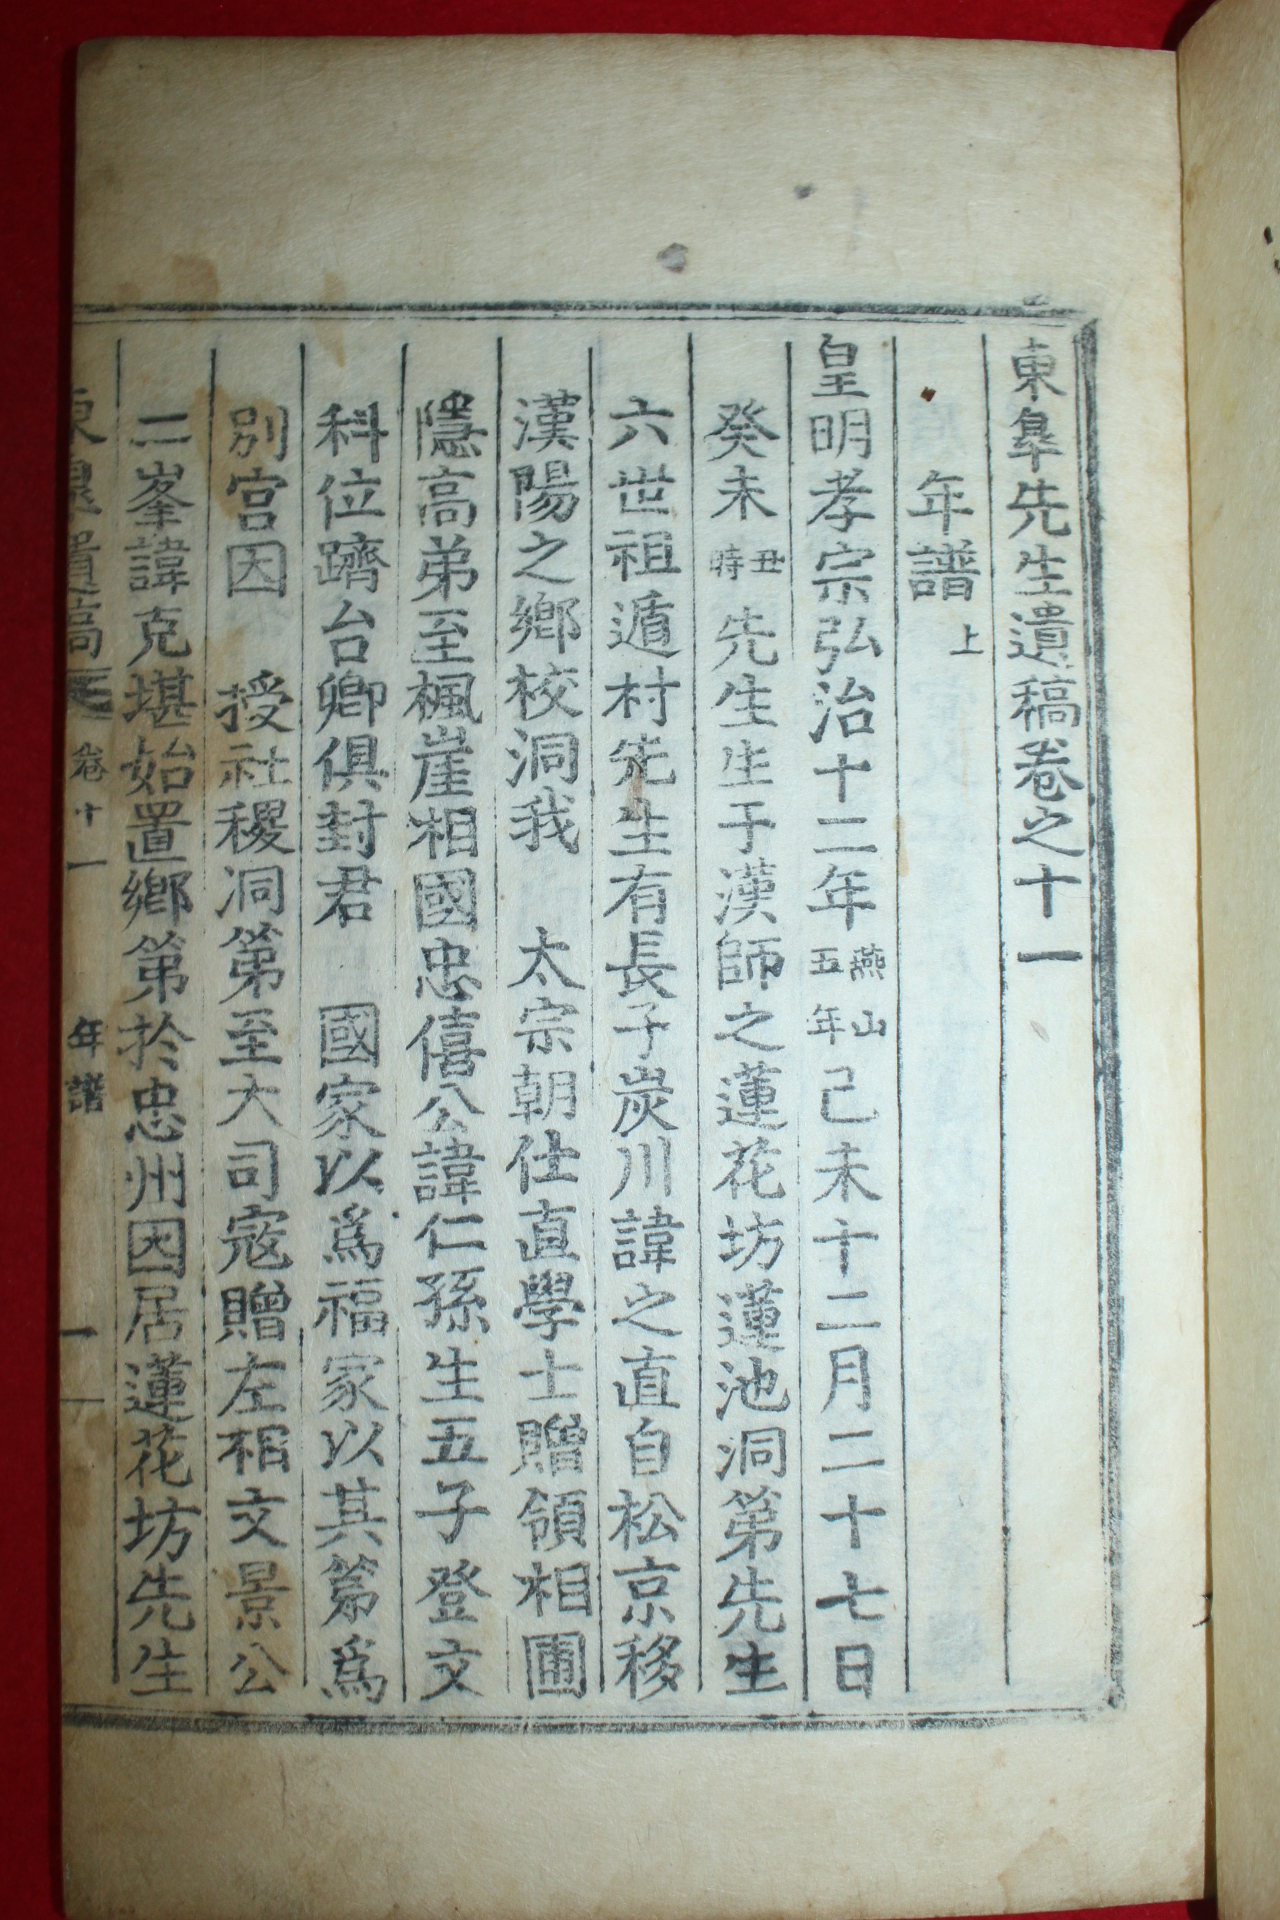 東皐先生遺稿卷之十一
年譜 上
皇明孝宗弘治十二年 燕山五年 己未十二月二十七日
癸未 丑時 先生生于漢師之蓮花坊蓮池洞第先生
六世祖遁村先生有長子炭川諱之直自松京移
漢陽之鄉校洞我 太宗朝仕直學士贈領相圃
隱高弟至楓崖相國忠僖公諱仁孫生五子登文
科位躋台卿俱封君 國家以爲福家以其第爲
別宮因 授社稷洞第至大司寇贈左相文景公
二峯諱克堪始置鄉第於忠州因居蓮花坊先生
東皐遺稿 卷十一 年譜 一